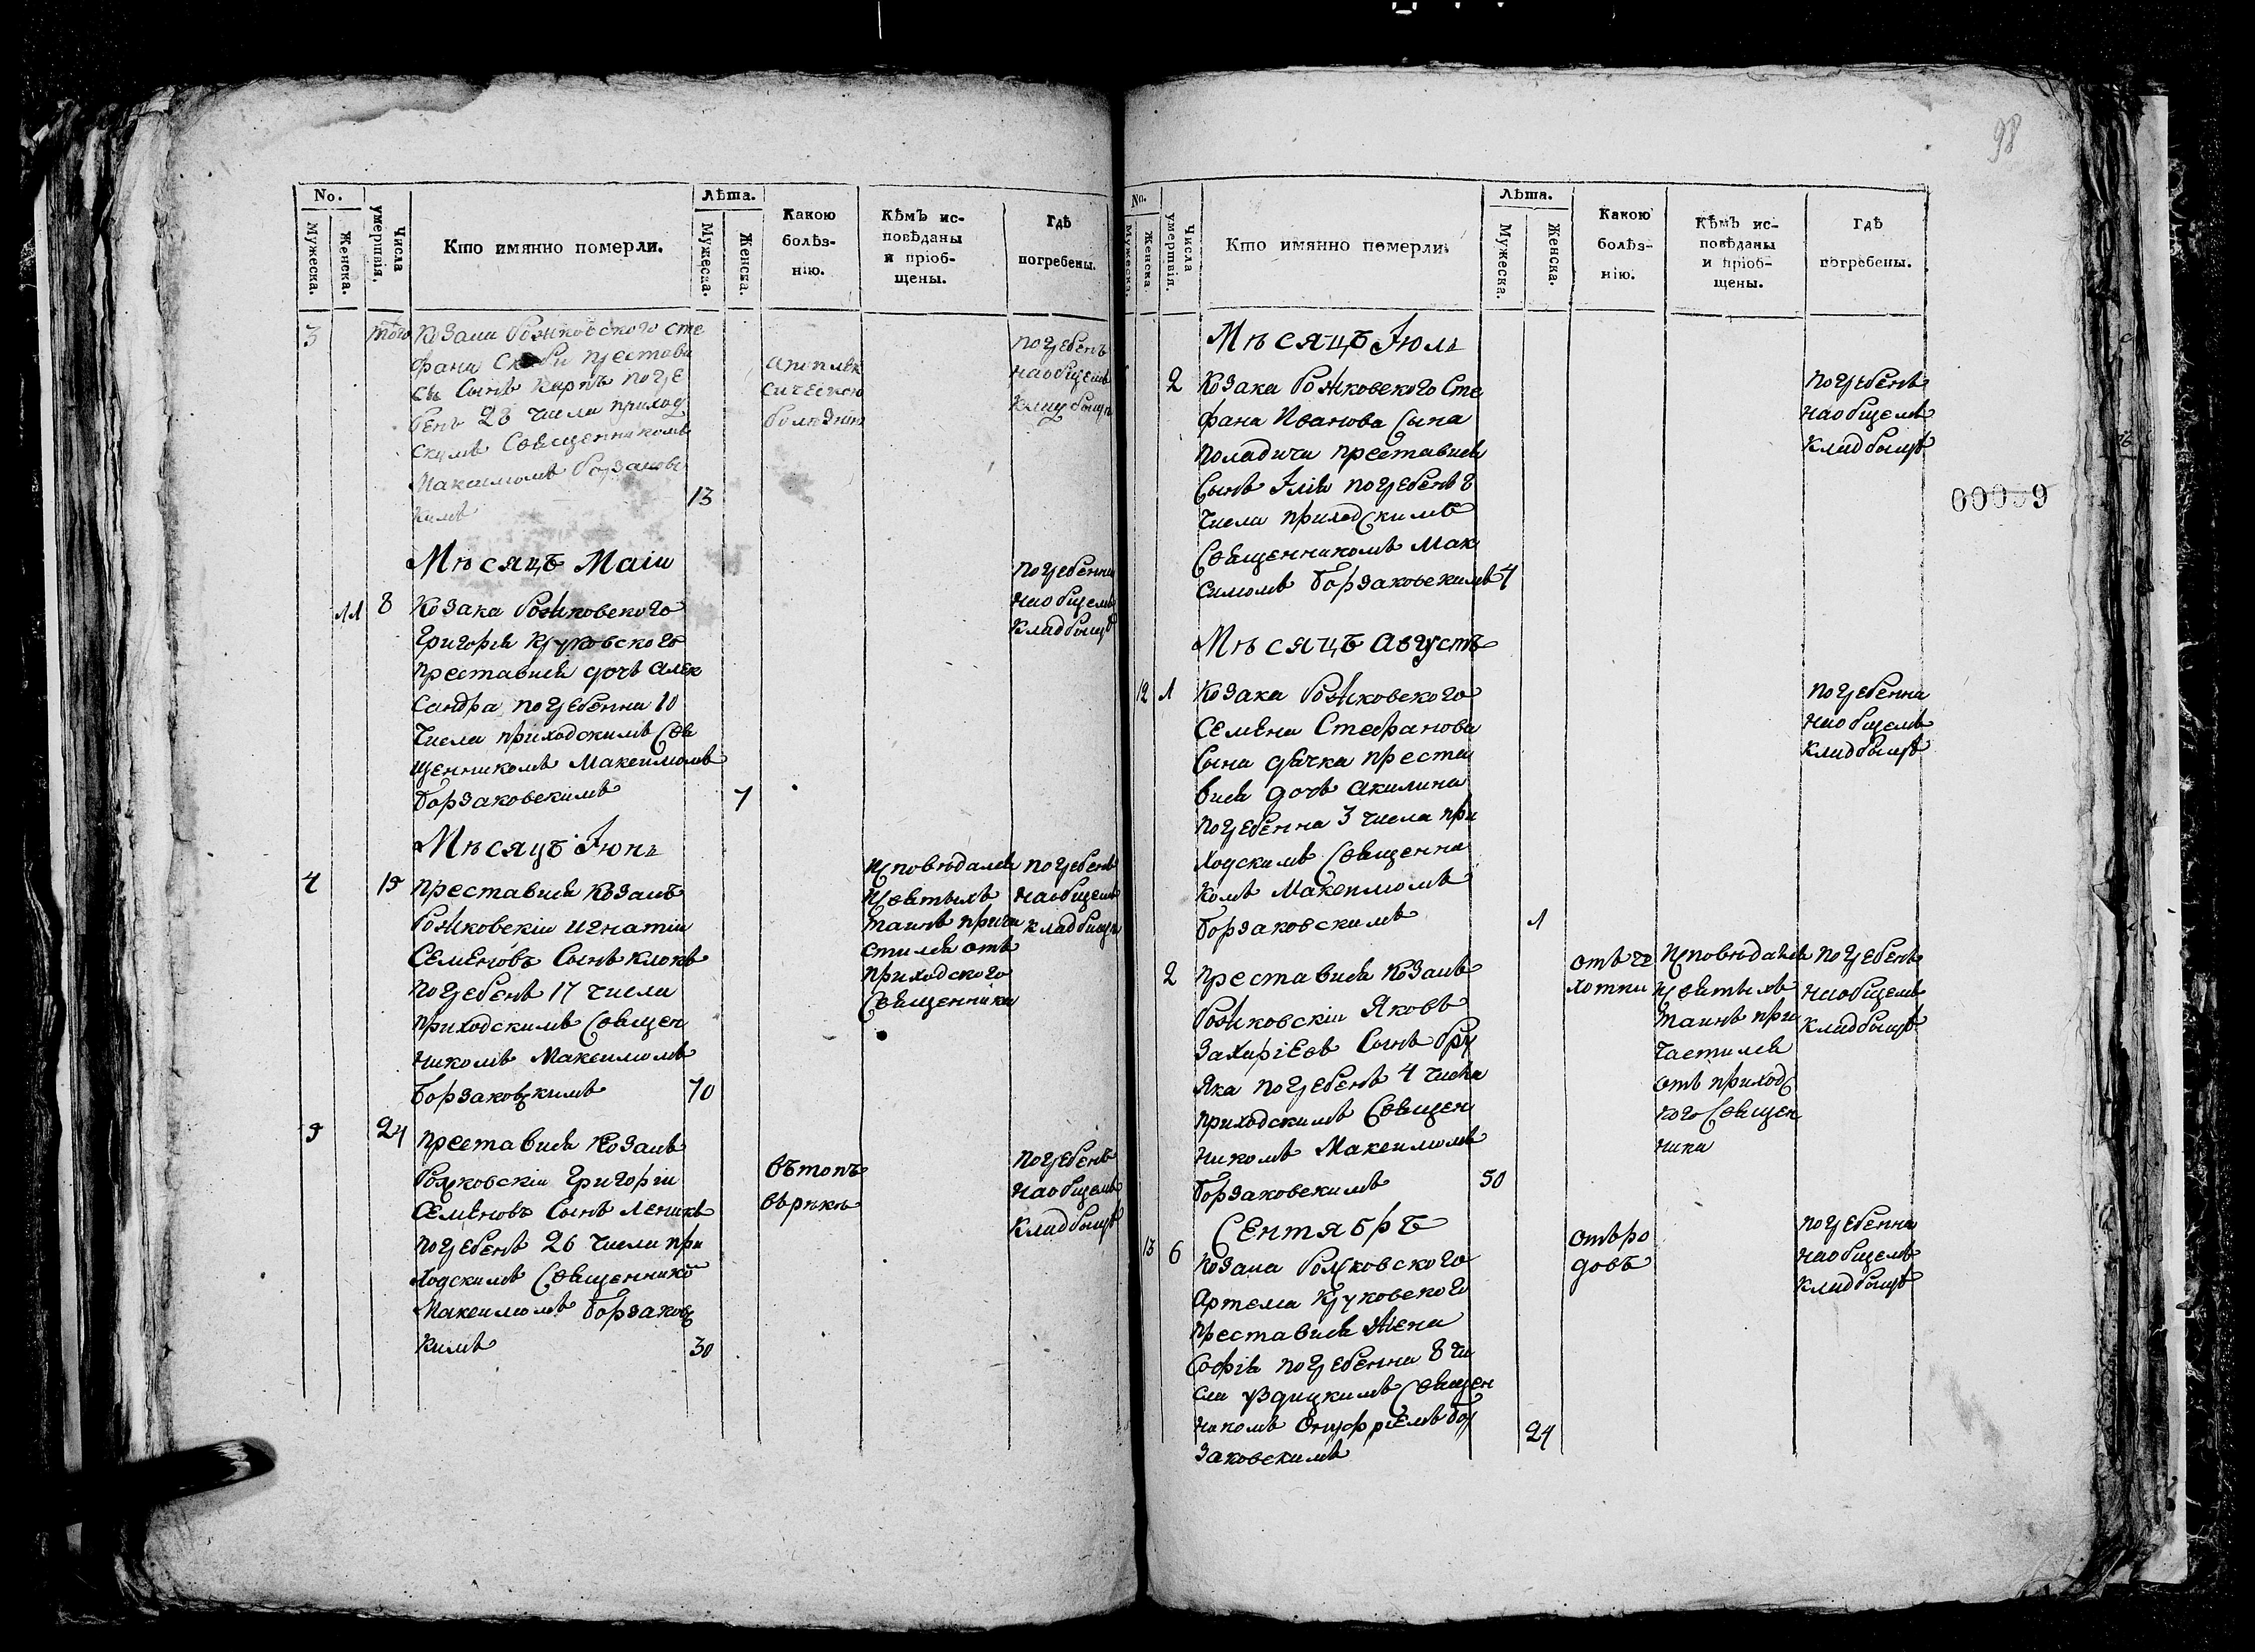 98
00099
No.
Мужеска.
Женска.
Числа умершвія.
Кто имянно померли.
Лѣта.
Мужеска.
Женска.
Какою болѣз-
нію.
Кѣмъ ис-
повѣданы
и пріоб-
щены.
Гдѣ
погребены.
3
того
Козака Рожковского Сте
фана преставы
сь Сынъ Карпъ погре
бенъ 28 числа приход
скимъ Священникомъ
Максимомъ Борзаковс
кимъ
13
апоплек
сическою
болѣзнію
погребенъ
наобщемъ
кладбищѣ
Мѣсяцъ Маіи
11
8
Козака Рожковского
Григорія Круковского
преставися дочь Алек
сандра погребенна 10
числа приходскимъ Свя
щенникомъ Максимомъ
Борзаковскимъ
7
погребенна
наобщемъ
кладбищѣ
Мѣсяцъ Іюнь
4
15
преставися козакъ
Рожковскіи игнатіи
Семеновъ Сынъ
погребенъ 17 числа
приходскимъ Священ
никомъ Максимомъ
Борзаковскимъ
70
исповѣдался
исвятыхъ
таинъ прича
стился отъ
приходского
Священника
погребенъ
наобщемъ
кладбищѣ
5
24
преставися козакъ
Рожковскіи Григоріи
Семеновъ Сынъ
погребенъ 26 числа при
ходскимъ Священнико
Максимомъ Борзаковс
кимъ
30
втопъ
врѣкѣ
погребенъ
наобщемъ
кладбищѣ
No.
Мужеска.
Женска.
Числа умершвія.
Кто имянно померли.
Лѣта.
Мужеска.
Женска.
Какою болѣз-
нію.
Кѣмъ ис-
повѣданы
и пріоб-
щены.
Гдѣ
погребены.
Мѣсяцъ Іюль
2
Козака Рожковского Сте
фана Иванова Сына
преставися
Сынъ Ілія погребенъ
числа приходскимъ
Священникомъ Мак
симомъ Борзаковскимъ
4
погребенъ
наобщемъ
кладбищѣ
Мѣсяцъ Августъ
12
1
Козака Рожковского
Семена Стефанова
Сына дячка преста
вися дочь акилина
погребенна 3 числа при
ходскимъ Священни
комъ Максимомъ
Борзаковскимъ
1
погребенна
наобщемъ
кладбищѣ
2
преставися козакъ
Рожковскіи Яковъ
Захаріевъ Сынъ
погребенъ 4 числа
приходскимъ Священ
никомъ Максимомъ
Борзаковскимъ
50
отъ че
хотки
исповѣдался
исвятыхъ
таинъ при
частился
отъ приходс
кого Священ
ника
погребенъ
наобщемъ
кладбищѣ
Сентябрь
13
6
козака Рожковского
Артема Круковского
преставися жена
Софія погребенна 8 чи
сла уздицкимъ Священ
никомъ Онуфріемъ Бор
заковскимъ
24
отъро
довъ
погребенна
наобщемъ
кладбищѣ